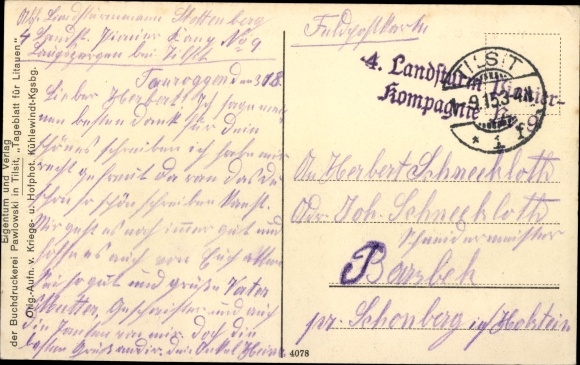 Abs. Landsturmmann Stoltenberg
4 Landst. Pionier Komp No 9
Laugszargen bei Tilsit
Tauroggen den 31 8.
Lieber Herbert! Ich sage
meinen besten Dank für dein
schönes schreiben ich habe mir
recht gefreut da ran das du
schon so schön schreiben kannst.
Mir geht es noch immer gut und
hoffe es auch von Euch allen
sei so gut und grüße Vater
Mutter, Geschwister und auch
die Tanten von mir. doch die
besten Grüße an dir. dein Onkel Heinr.
Eigentum und Verlag
der Buchdruckerei Pawlowski in Tilsit, „Tageblatt für Litauen"
Orig.-Aufn. v. Kriegs- u. Hofphot. Kühlewindt-Kgsbg.
4078
Feldpostkarte
4. Landsturm Pionier-
Kompagnie
TILSIT
9.15.3-4N
* 1
An Herbert Schneekloth
Adr. Joh. Schneekloth
Schneidermeister
Barsbek
pr. Schönberg i/ Holstein